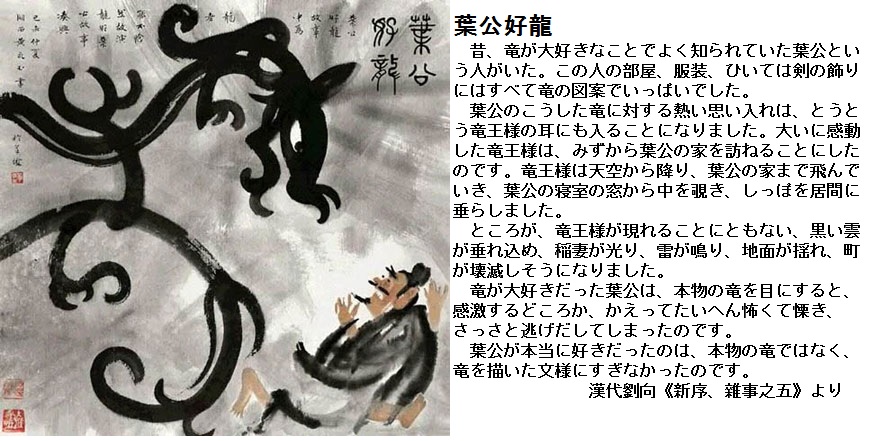 葉公
好龍
葉公好龍
　昔、竜が大好きなことでよく知られていた葉公とい
う人がいた。この人の部屋、服装、ひいては剣の飾り
にはすべて竜の図案でいっぱいでした。
　葉公のこうした竜に対する熱い思い入れは、とうと
う竜王様の耳にも入ることになりました。大いに感動
した竜王様は、みずから葉公の家を訪ねることにした
のです。竜王様は天空から降り、葉公の家まで飛んで
いき、葉公の寝室の窓から中を覗き、しっぽを居間に
垂らしました。
　ところが、竜王様が現れることにともない、黒い雲
が垂れ込め、稲妻が光り、雷が鳴り、地面が揺れ、町
が壊滅しそうになりました。
　竜が大好きだった葉公は、本物の竜を目にすると、
感激するどころか、かえってたいへん怖くて慄き、
さっさと逃げだしてしまったのです。
　葉公が本当に好きだったのは、本物の竜ではなく、
竜を描いた文様にすぎなかったのです。
漢代劉向《新序、雜事之五》より